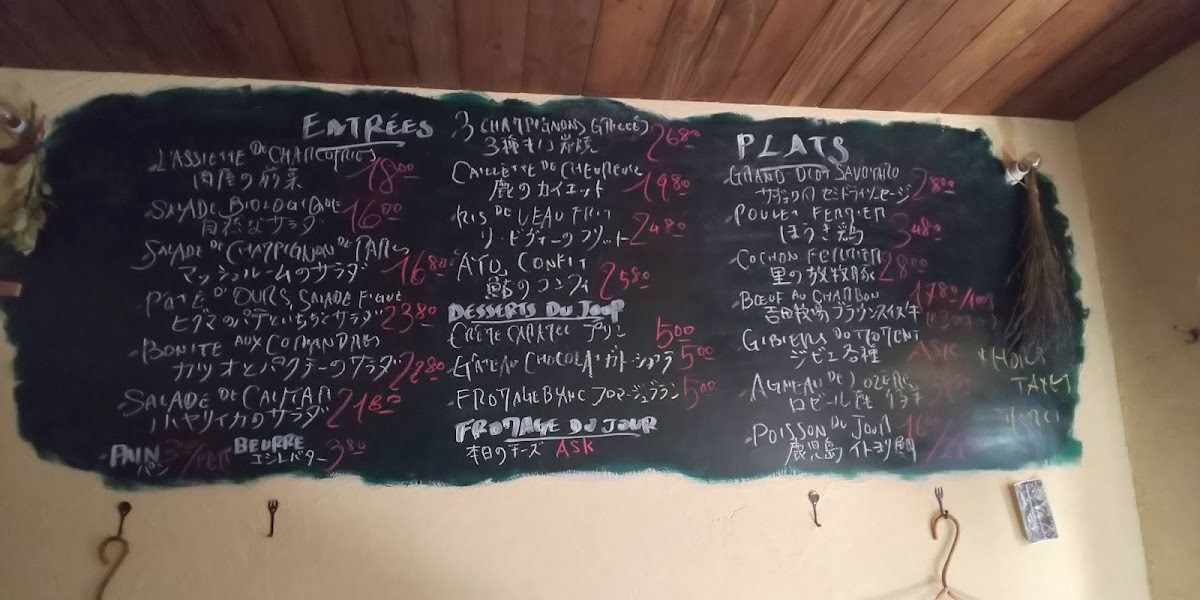 ENTRÉES
L'ASSIETTE DE CHARCUTRIES 18 00
肉屋の前菜
SALADE BIOLOGIQUE 16 00
自然なサラダ
SALADE DE CHAMPIGNON DE PARIS
マッシュルームのサラダ 16 80
PATÉ D'OURS, SALADE FIGUE
ヒグマのパテといちぢくサラダ 23 80
BONITE AUX CORIANDRES
カツオとパクチーのサラダ 22 80
SALADE DE CALMAR
ハヤリイカのサラダ 21 80
PAIN
パン
BEURRE
エシレバター 3 80
3 CHAMPIGNONS GRILLÉS 26 80
3種きのこ炭焼
CAILLETTE DE CHEVREUIL
鹿のカイエット 19 80
RIS DE VEAU FRIT
リ・ド・ヴォーのフリット 24 80
AYU CONFIT
鮎のコンフィ 25 80
DESSERTS DU JOUR
CRÈME CARAMEL プリン 5 00
GÂTEAU CHOCOLAT ガトーショコラ 5 00
FROMAGE BLANC フロマージュブラン 5 00
FROMAGE DU JOUR
本日のチーズ ASK
PLATS
GRAND DIOT SAVOYARD
サヴォワ セミドライソーセージ 28 00
POULET FERMIER
ほうき鶏 34 80
COCHON FERMIER 28 00
里の放牧豚
BŒUF AU CHARBON 17 80/100g
吉田牧場ブラウンスイス牛
GIBIERS DOTTOTENT
ジビエ各種 ASK
AGNEAU DE LOZÈRE
ロゼール産
POISSON DU JOUR
鹿児島 イトヨリ鯛
HORS
TAXES
MERCI